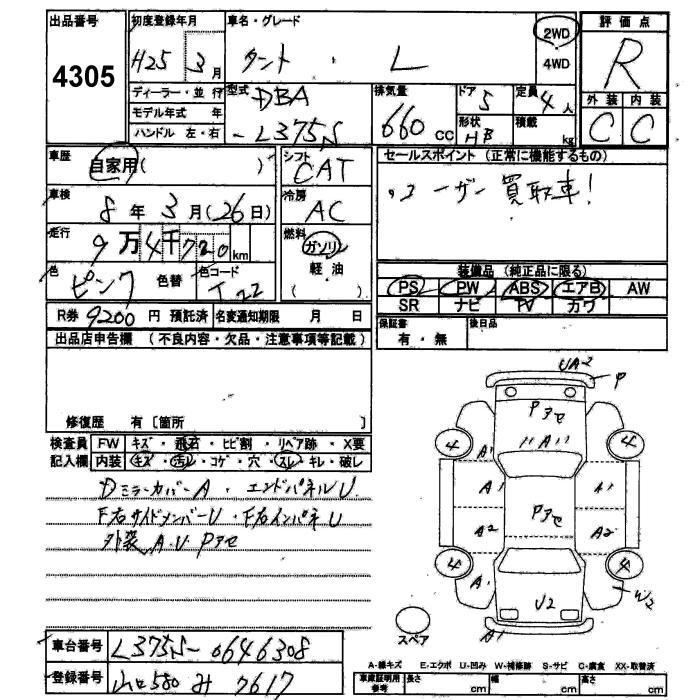 出品番号 初度登録年月 車名・グレード 評価点
4305 H25 3月 タント・L 2WD R
4WD
ディーラー・並行 型式 DBA 排気量 ドア 5 定員 4人 外装 内装
モデル年式 年 660cc 形状 HB 積載 kg C C
ハンドル 左・右 -L375S
車歴 自家用( ) シフト CAT セールスポイント (正常に機能するもの)
車検 8年3月(26日) 冷房 AC ユーザー買取車!
走行 9万4千720km 燃料 ガソリン
軽油
( )
色 ピンク 色替 色コード T22 装備品 (純正品に限る)
PS PW ABS エアB AW
SR ナビ TV カワ
R券 9200円 預託済 名変通知期限 月 日 保証書 有・無 後日品
出品店申告欄 (不良内容・欠品・注意事項等記載)
UA-2 P
Pアセ
修復歴 有 [箇所 ]
検査員 FW キズ・飛石・ヒビ割・リペア跡・X要 4 A1 A 4
記入欄 内装 キズ・汚レ・コゲ・穴・スレ・キレ・破レ
DミラーカバーA・エンドパネルU A1 A1
F右サイドメンバーU・F右インパネU Pアセ
外装A.U Pアセ A2 A2
4 4
A W2
U2
スペア A1
車台番号 L375S-0646308
A-線キズ E-エクボ U-凹み W-補修跡 S-サビ C-腐食 XX-取替済
登録番号 山口580 み 7617 車庫証明用参考 長さ cm 幅 cm 高さ cm